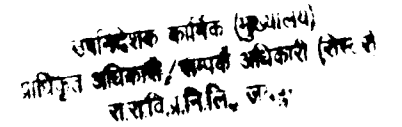 उपनिदेशक कार्मिक (मुख्यालय)
प्राधिकृत अधिकारी/सम्पर्क अधिकारी
रा.रा.वि.प्र.नि.लि.,